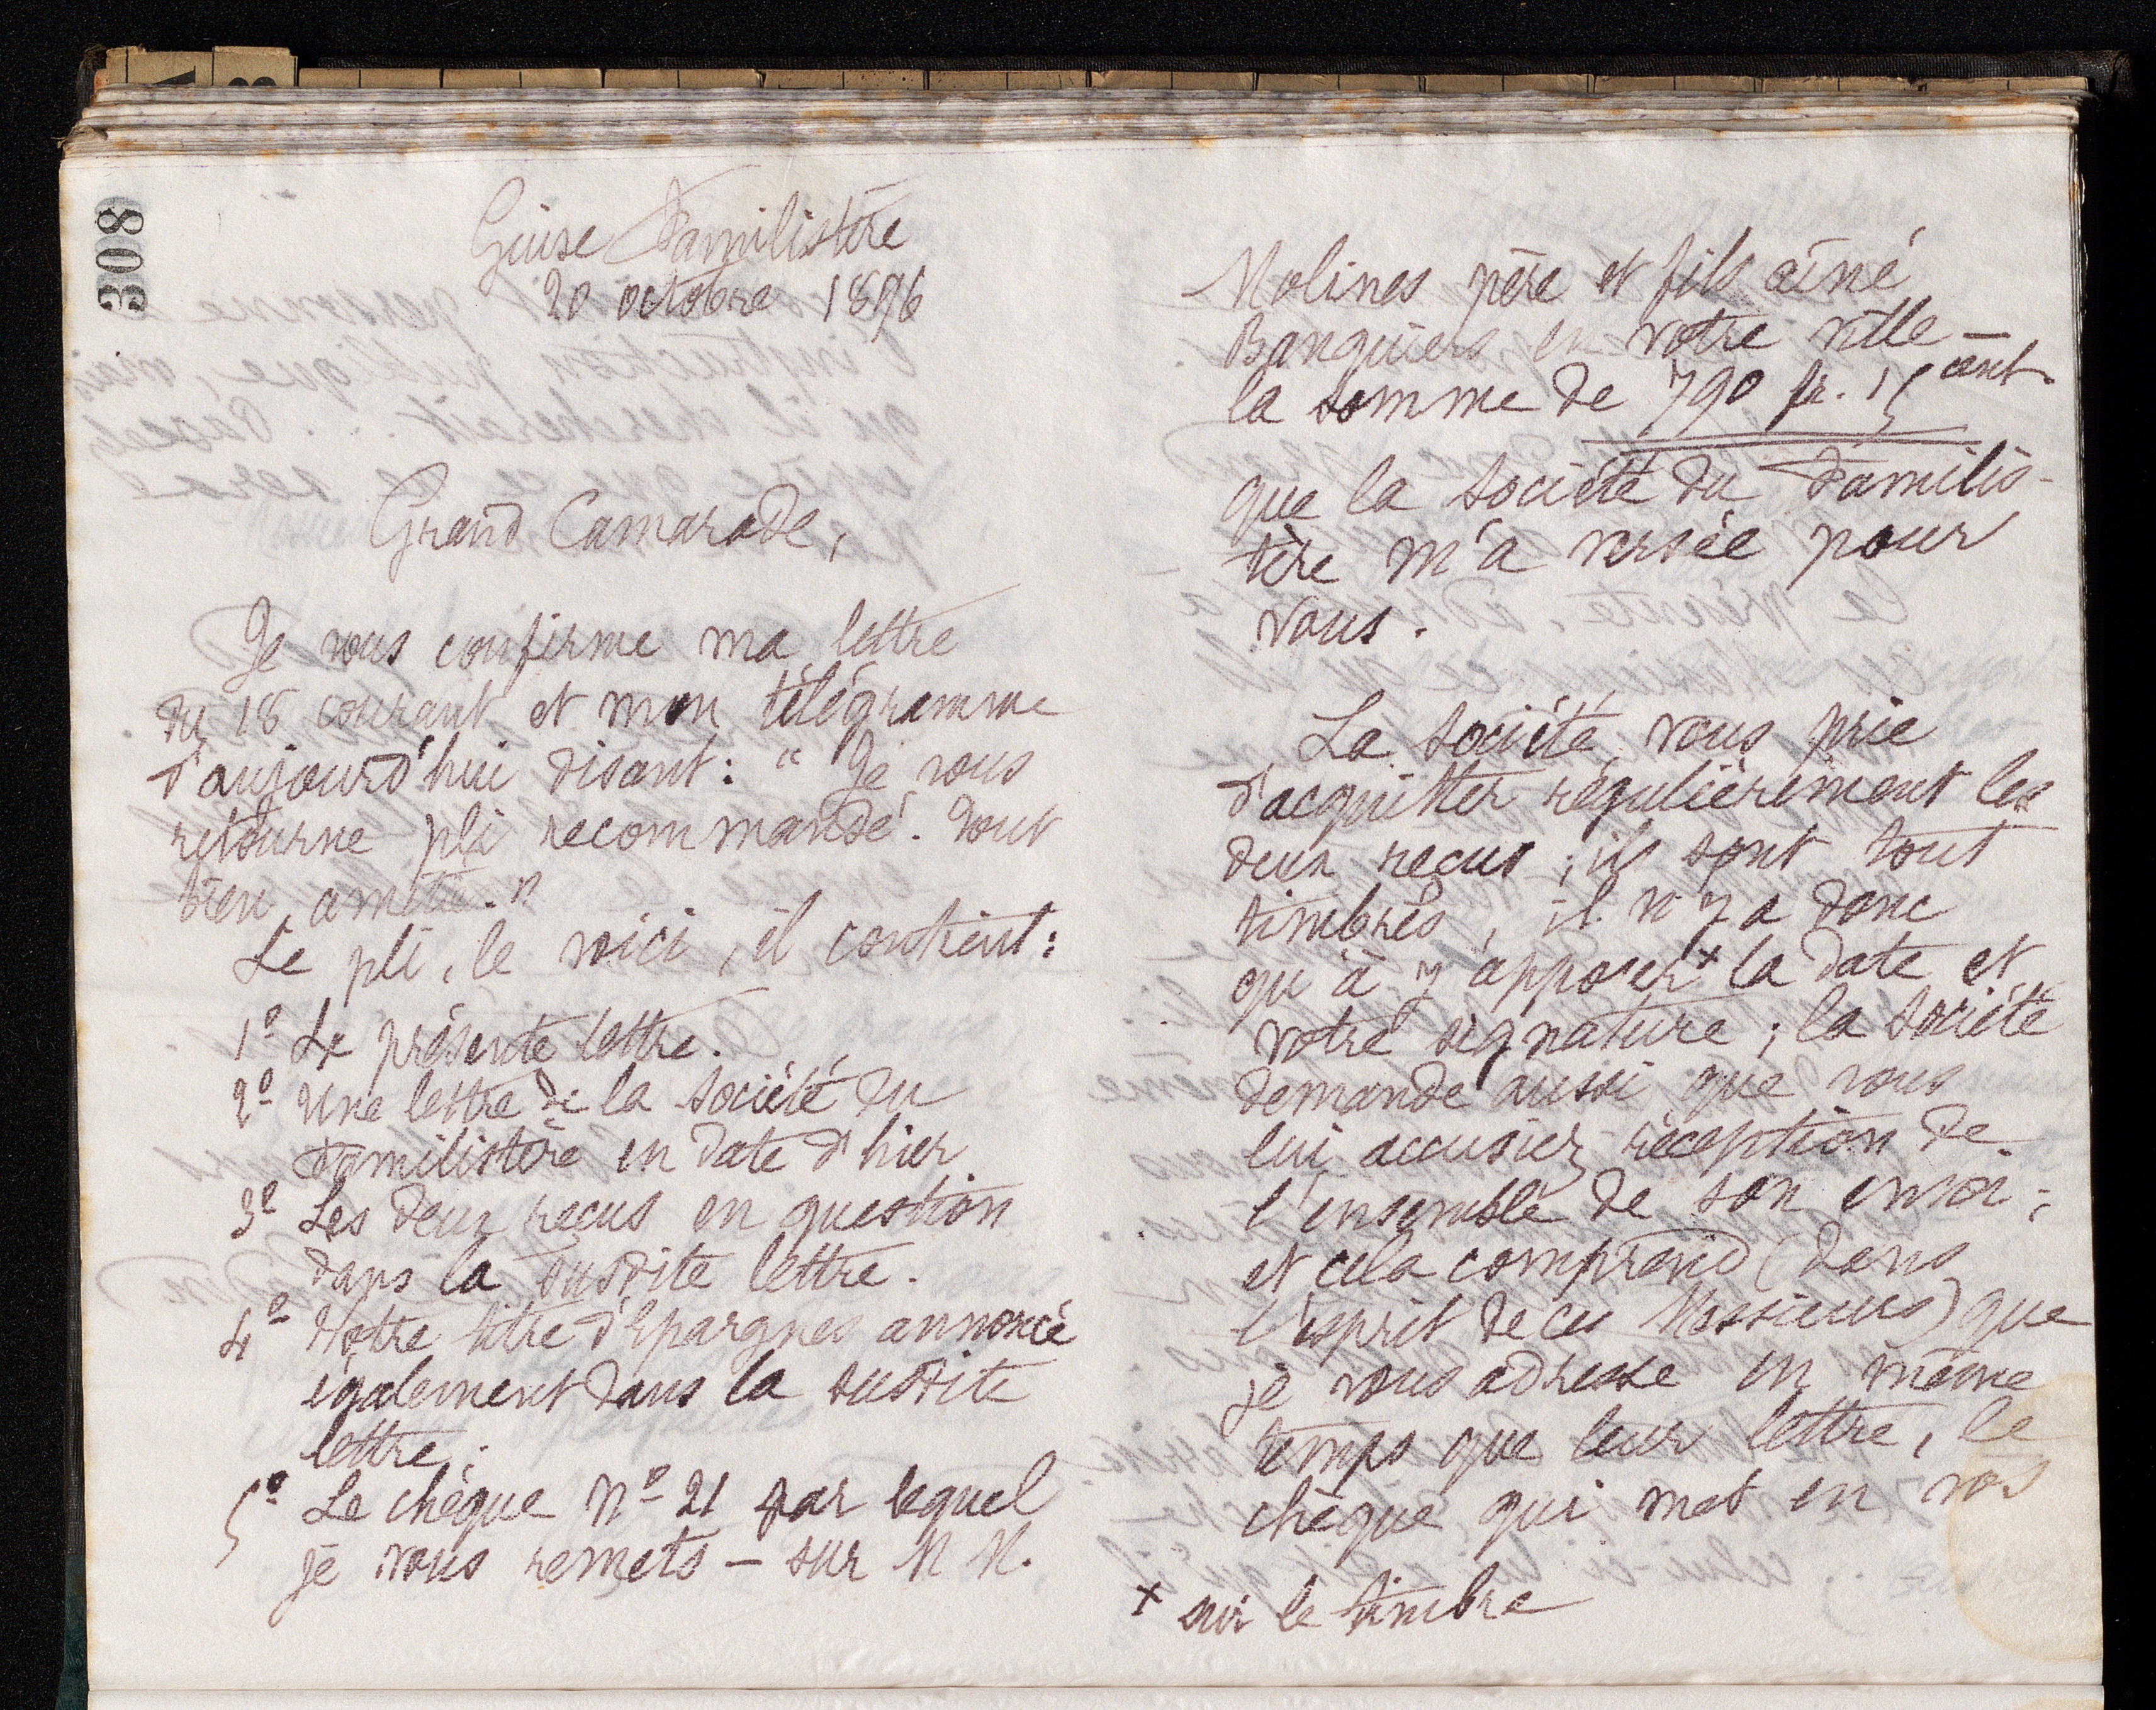 308
Guise Familistère
20 octobre 1896
Grand Camarade,
Je vous confirme ma lettre
du 18 courant et mon télégramme
d'aujourd'hui disant : " Je vous
retourne pli recommandé. Tout
bien amitié."
Le pli, le voici, il contient :
1º La présente lettre.
2º Une lettre de la Société du
Familistère en date d'hier
3º Les deux reçus en question
dans la susdite lettre.
4º Votre titre d'Epargnes annoncé
également dans la susdite
lettre.
5º Le chèque Nº 21 par lequel
je vous remets – sur M M.
Molines père et fils aîné
Banquiers en votre ville –
la somme de 790 fr. 15 cent
que la Société du Familis-
tère m'a versée pour
vous.
La Société vous prie
d'acquitter régulièrement les
deux reçus ; ils sont tout
timbrés, il n'y a donc
qu'à y apposer x la date et
votre signature ; la Société
demande aussi que vous
lui accusiez réception de
l'ensemble de son envoi ;
et cela comprend (dans
l'esprit de ces Messieurs) que
je vous adresse en même
temps que leur lettre, le
chèque qui met en vos
x sur le timbre